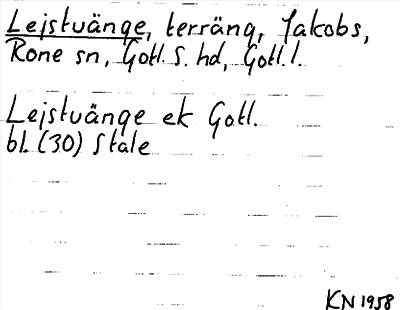 Lejstuänge, terräng, Jakobs,
Rone sn, Gotl. S. hd, Gotl. l.
Lejstuänge ek Gotl.
bl. (30) Stale
KN 1958